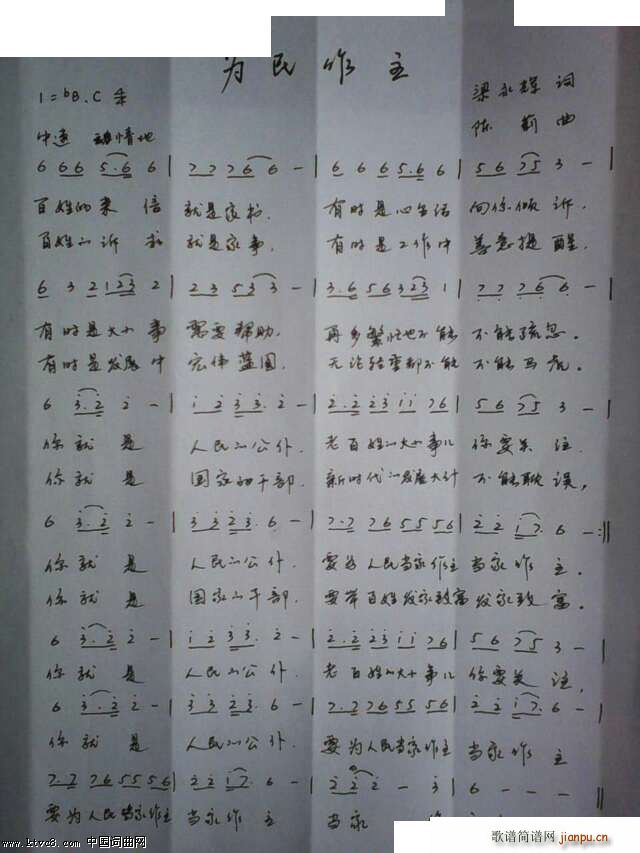 为民作主
1=♭B、C 4/4
梁永辉 词
中速 动情地
陈莉 曲
6 6 6 5. 6 6 | 7 7 7 6 6 - | 6 6 6 5. 6 6 | 5 6 7 5 3 - |
百姓的来信 就是家书. 有时是心里话 向你倾诉.
百姓的诉求 就是家事. 有时是工作中 善意提醒.
6 3 2 1 2 3 2 | 2 3 5 3 3 - | 3. 6 5 6 3 2 3 1 | 7 7 7 6 6 - |
有时是大小事 需要帮助. 再多繁忙也不能 不能疏忽.
有时是发展中 宏伟蓝图. 无论轻重都不能 不能马虎.
6 3. 2 2 - | 1 2 3 3. 2 - | 2. 2 2 3 1 1 7 6 | 5 6 7 5 3 - |
你就是 人民的公仆. 老百姓的大小事儿 你要关注.
你就是 国家的干部. 新时代的发展大计 不能耽误,
6 3. 2 2 - | 3 3 2 3. 6 - | 7. 7 7 6 5 5 5 6 | 2 2 1 7. 6 - :||
你就是 人民的公仆. 要为人民当家作主 当家作主.
你就是 国家的干部. 要带百姓发家致富 发家致富.
6 3. 2 2 - | 1 2 3 3. 2 - | 2. 2 2 3 1 1 7 6 | 5 6 7 5 3 - |
你就是 人民的公仆. 老百姓的大小事儿 你要关注,
6 3. 2 2 - | 3 3 2 3. 6 - | 7. 7 7 6 5 5 5 6 | 2 2 1 7. 6 - |
你就是 人民的公仆. 要为人民当家作主 当家作主
7. 7 7 6 5 5 5 6 | 2 2 1 7. 6 - | 2 2 2 - 3 | 6 - - - ||
要为人民当家作主 当家作主 当家作
www.ktvc8.com 中国词曲网
歌谱简谱网
jianpu.cn